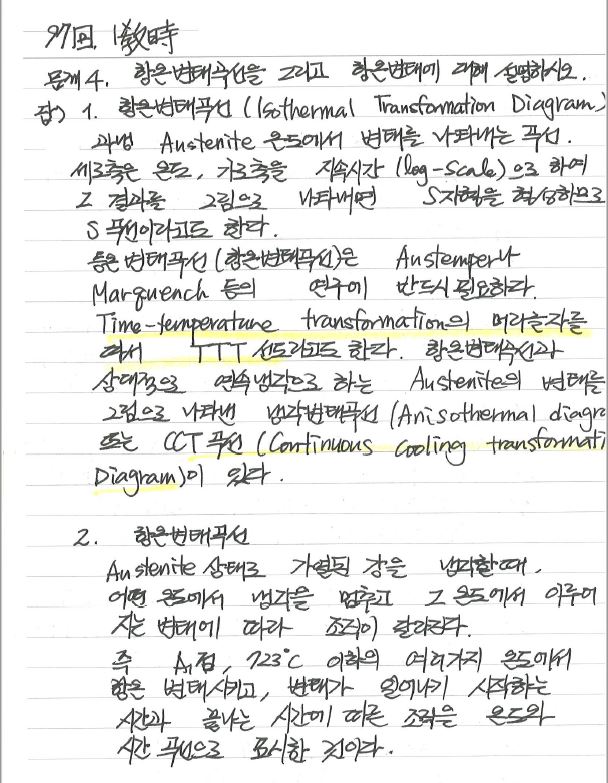 97回. 1敎時
문제4. 항온변태곡선을 그리고 항온변태에 대해 설명하시오.
답) 1. 항온변태곡선 (Isothermal Transformation Diagram)
과냉 Austenite 온도에서 변태를 나타내는 곡선.
세로축은 온도, 가로축을 지속시간 (log-scale)으로 하여
그 결과를 그림으로 나타내면 S자형을 형성하므로
S 곡선이라고도 한다.
등온변태곡선 (항온변태곡선)은 Austemper나
Marquench 등의 연구에 반드시 필요하다.
Time-temperature transformation의 머리글자를
따서 TTT 선도라고도 한다. 항온변태곡선과
상대적으로 연속냉각으로 하는 Austenite의 변태를
그림으로 나타낸 냉각변태곡선 (Anisothermal diagra
또는 CCT 곡선 (Continuous cooling transformati
Diagram)이 있다.
2. 항온변태곡선
Austenite 상태로 가열된 강을 냉각할때,
어떤 온도에서 냉각을 멈추고 그 온도에서 이루어
지는 변태에 따라 조직이 달라진다.
즉 A₁점, 723℃ 이하의 여러가지 온도에서
항온 변태시키고, 변태가 일어나기 시작하는
시간과 끝나는 시간에 따른 조직을 온도와
시간 곡선으로 표시한 것이다.